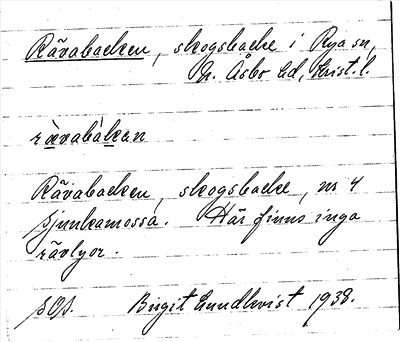 Rävabacken, skogsbacke i Rya sn,
N. Åsbo hd, Krist. l.
rävabàkan
Rävabacken, skogsbacke, nr 4
Sjunkamossa. Här finns inga
rävlyor.
SOS. Birgit Lundkvist 1938.